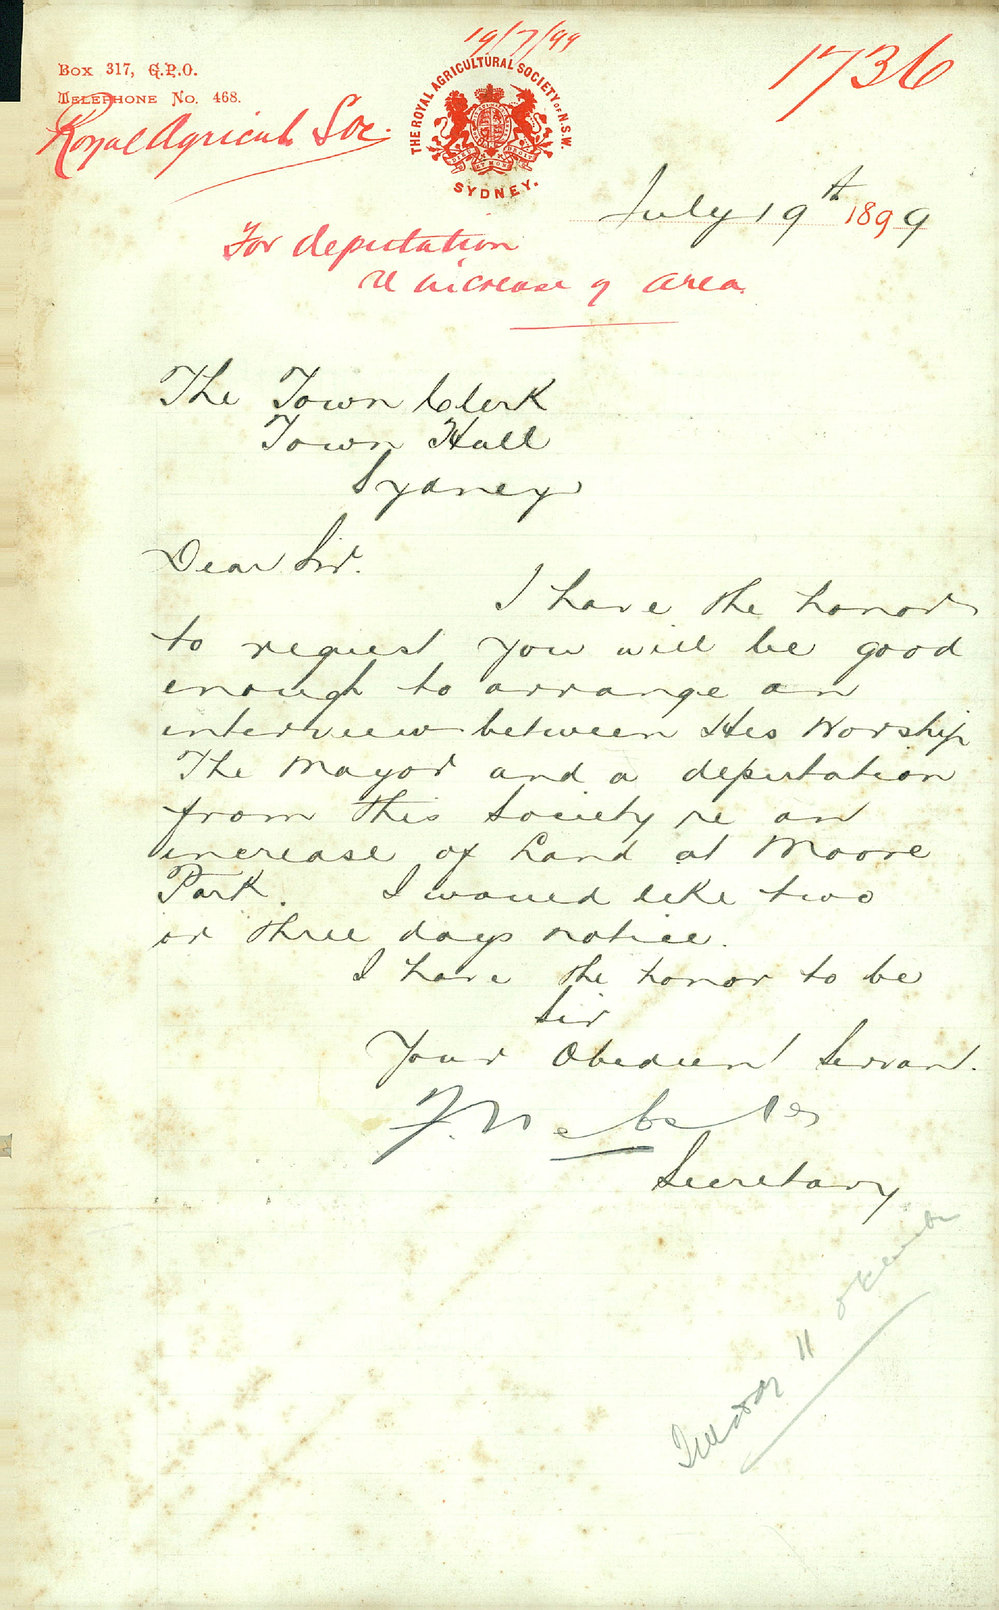 19/7/99
1736
Box 317, G.P.O.
Telephone No. 468.
Royal Agricul. Soc.
THE ROYAL AGRICULTURAL SOCIETY OF N.S.W.
SYDNEY.
July 19th 1899
For deputation
re increase of area.
The Town Clerk
Town Hall
Sydney
Dear Sir.
I have the honor
to request you will be good
enough to arrange an
interview between His Worship
The Mayor and a deputation
from this Society re an
increase of Land at Moore
Park. I would like two
or three days notice.
I have the honor to be
Sir
Your Obedient Servant.
F. Webster
Secretary
Tuesday 11